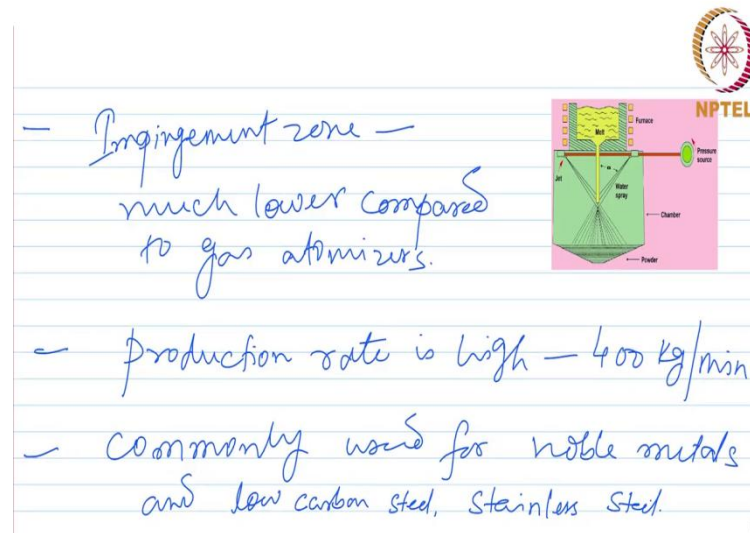 NPTEL
- Impingement zone -
much lower compared
to gas atomizers.
Melt
Furnace
Pressure
source
Jet
Water
spray
Chamber
Powder
- production rate is high - 400 kg/min
- commonly used for noble metals
and low carbon steel, stainless steel.